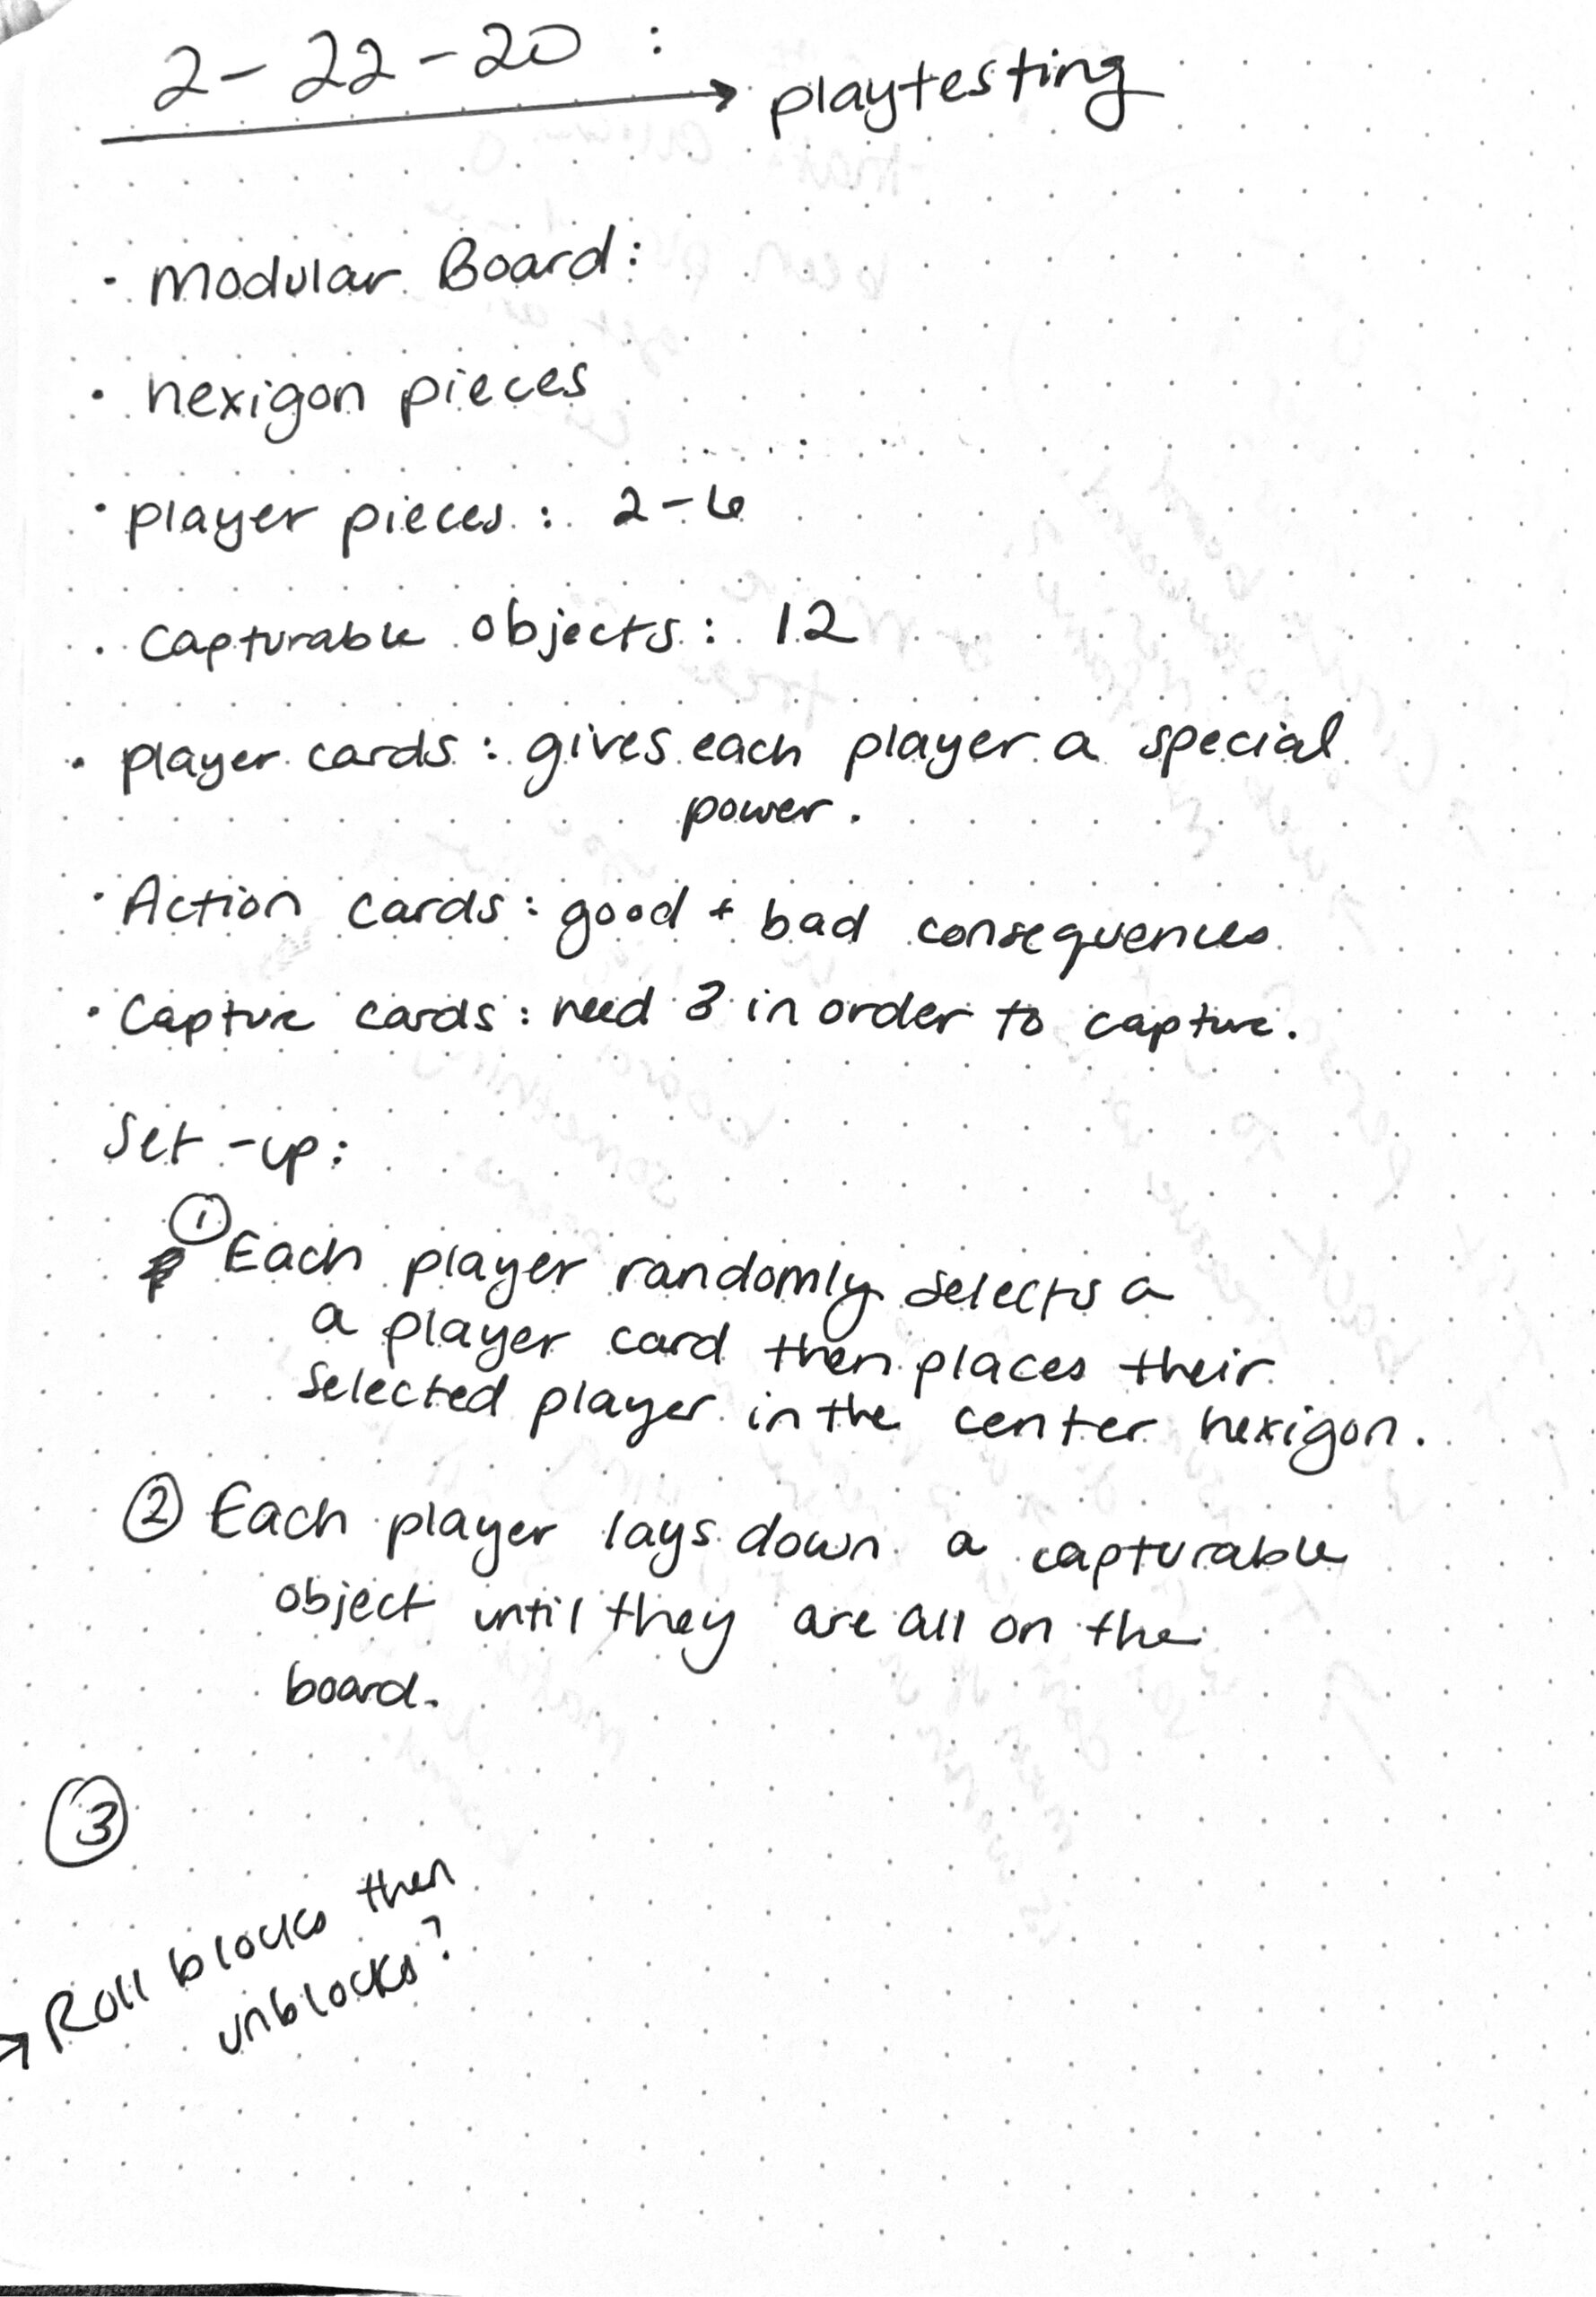 2-22-20 :
→ playtesting
· Modular Board:
· hexigon pieces
· player pieces : 2-6
· Capturable objects : 12
· player cards : gives each player a special
power.
· Action cards : good + bad consequences
· Capture cards : need 3 in order to capture.
Set-up:
① Each player randomly selects a
a player card then places their
selected player in the center hexigon.
② Each player lays down a capturable
object until they are all on the
board.
③
→ Roll blocks then
unblocks?